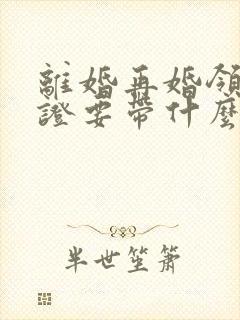 離婚再婚領
證要帶什麼
半世笙簫